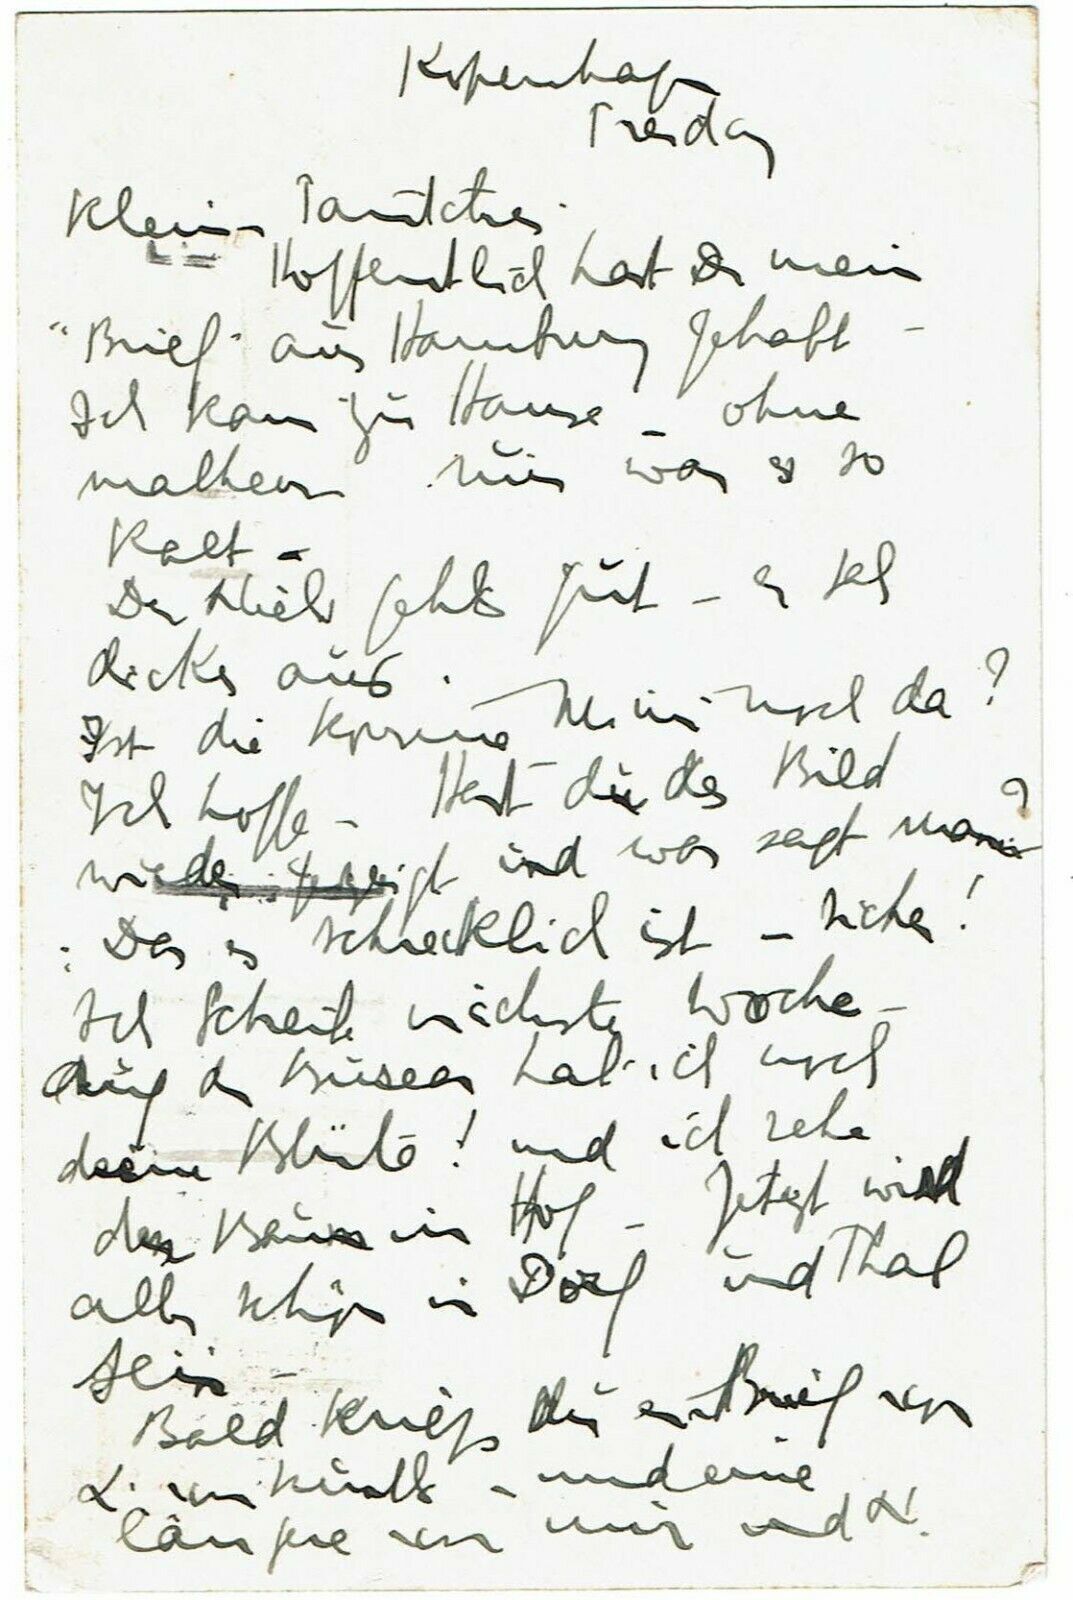 Kopenhagn
Kleine
Hoffentlich hast Du mein
"Brief" aus Hamburg gehabt -
Ich kam zu Hause - ohne
malheur nur war es so
Kalt -
Der gehts gut - er
dickes aus.
Ist die da?
Ich hoffe - Hast du des Bild
wieder gezeigt und was sagt man?
Das es schrecklich ist - sicher!
Ich Schreibe nächste Woche -
Auf der hab ich noch
deine Blüte! und ich sehe
den Baum in Hof - Jetzt wird
alles schön in Dorf und Thal
sein -
Bald kriegs du ein Brief von
und eine
längere von mir und